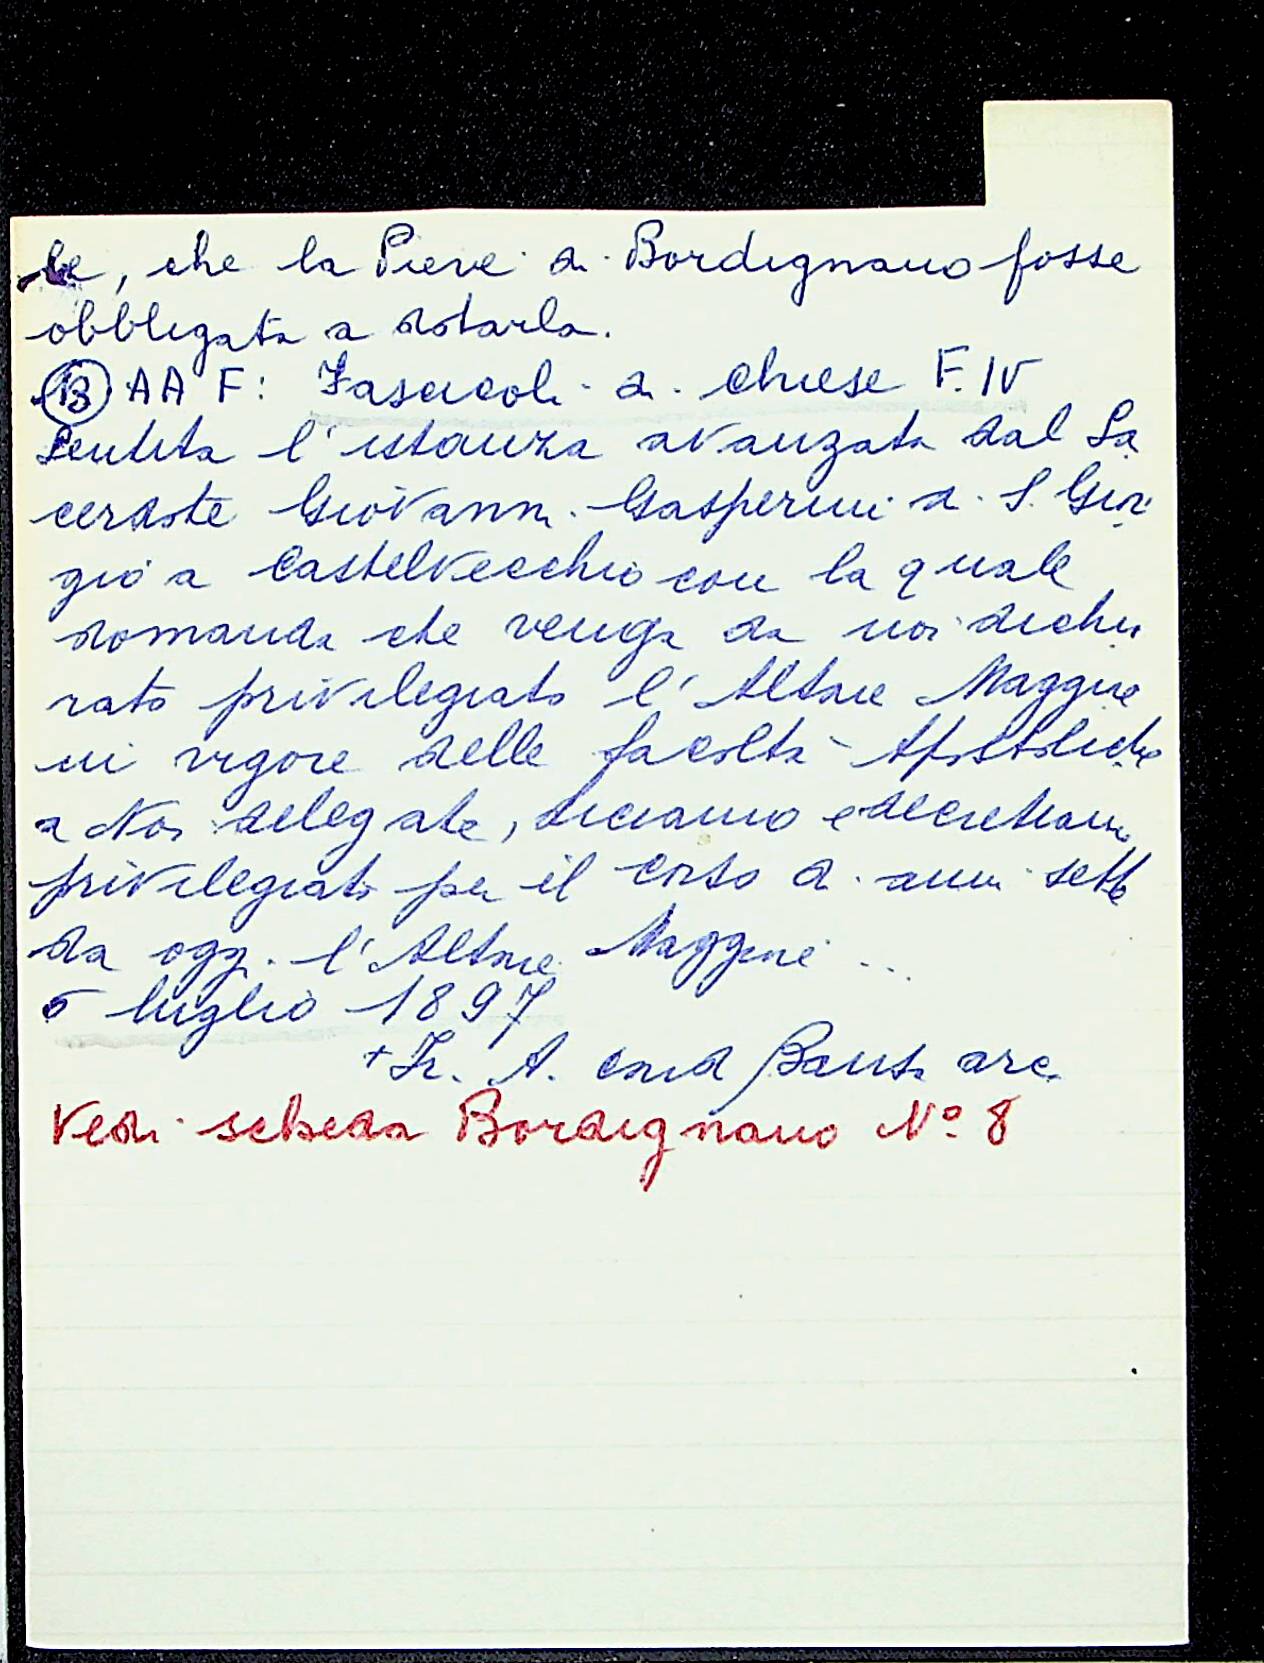 le, che la Pieve di Bordignano fosse
obbligata a dotarla.
13 AAF: Fascicoli di chiese F. IV
Sentita l'istanza avanzata dal Sa
cerdote Giovanni Gasperini di S. Gior
gio a Castelvecchio con la quale
domanda che venga da noi dichia
rato privilegiato l'Altare Maggiore
in vigore delle facoltà Apostoliche
a Noi delegate, diciamo e decretiamo
privilegiato per il corso di anni sette
da oggi l'Altare Maggiore ...
5 luglio 1897
+ Fr. A. card Bausa arc.
Vedi scheda Bordignano N° 8